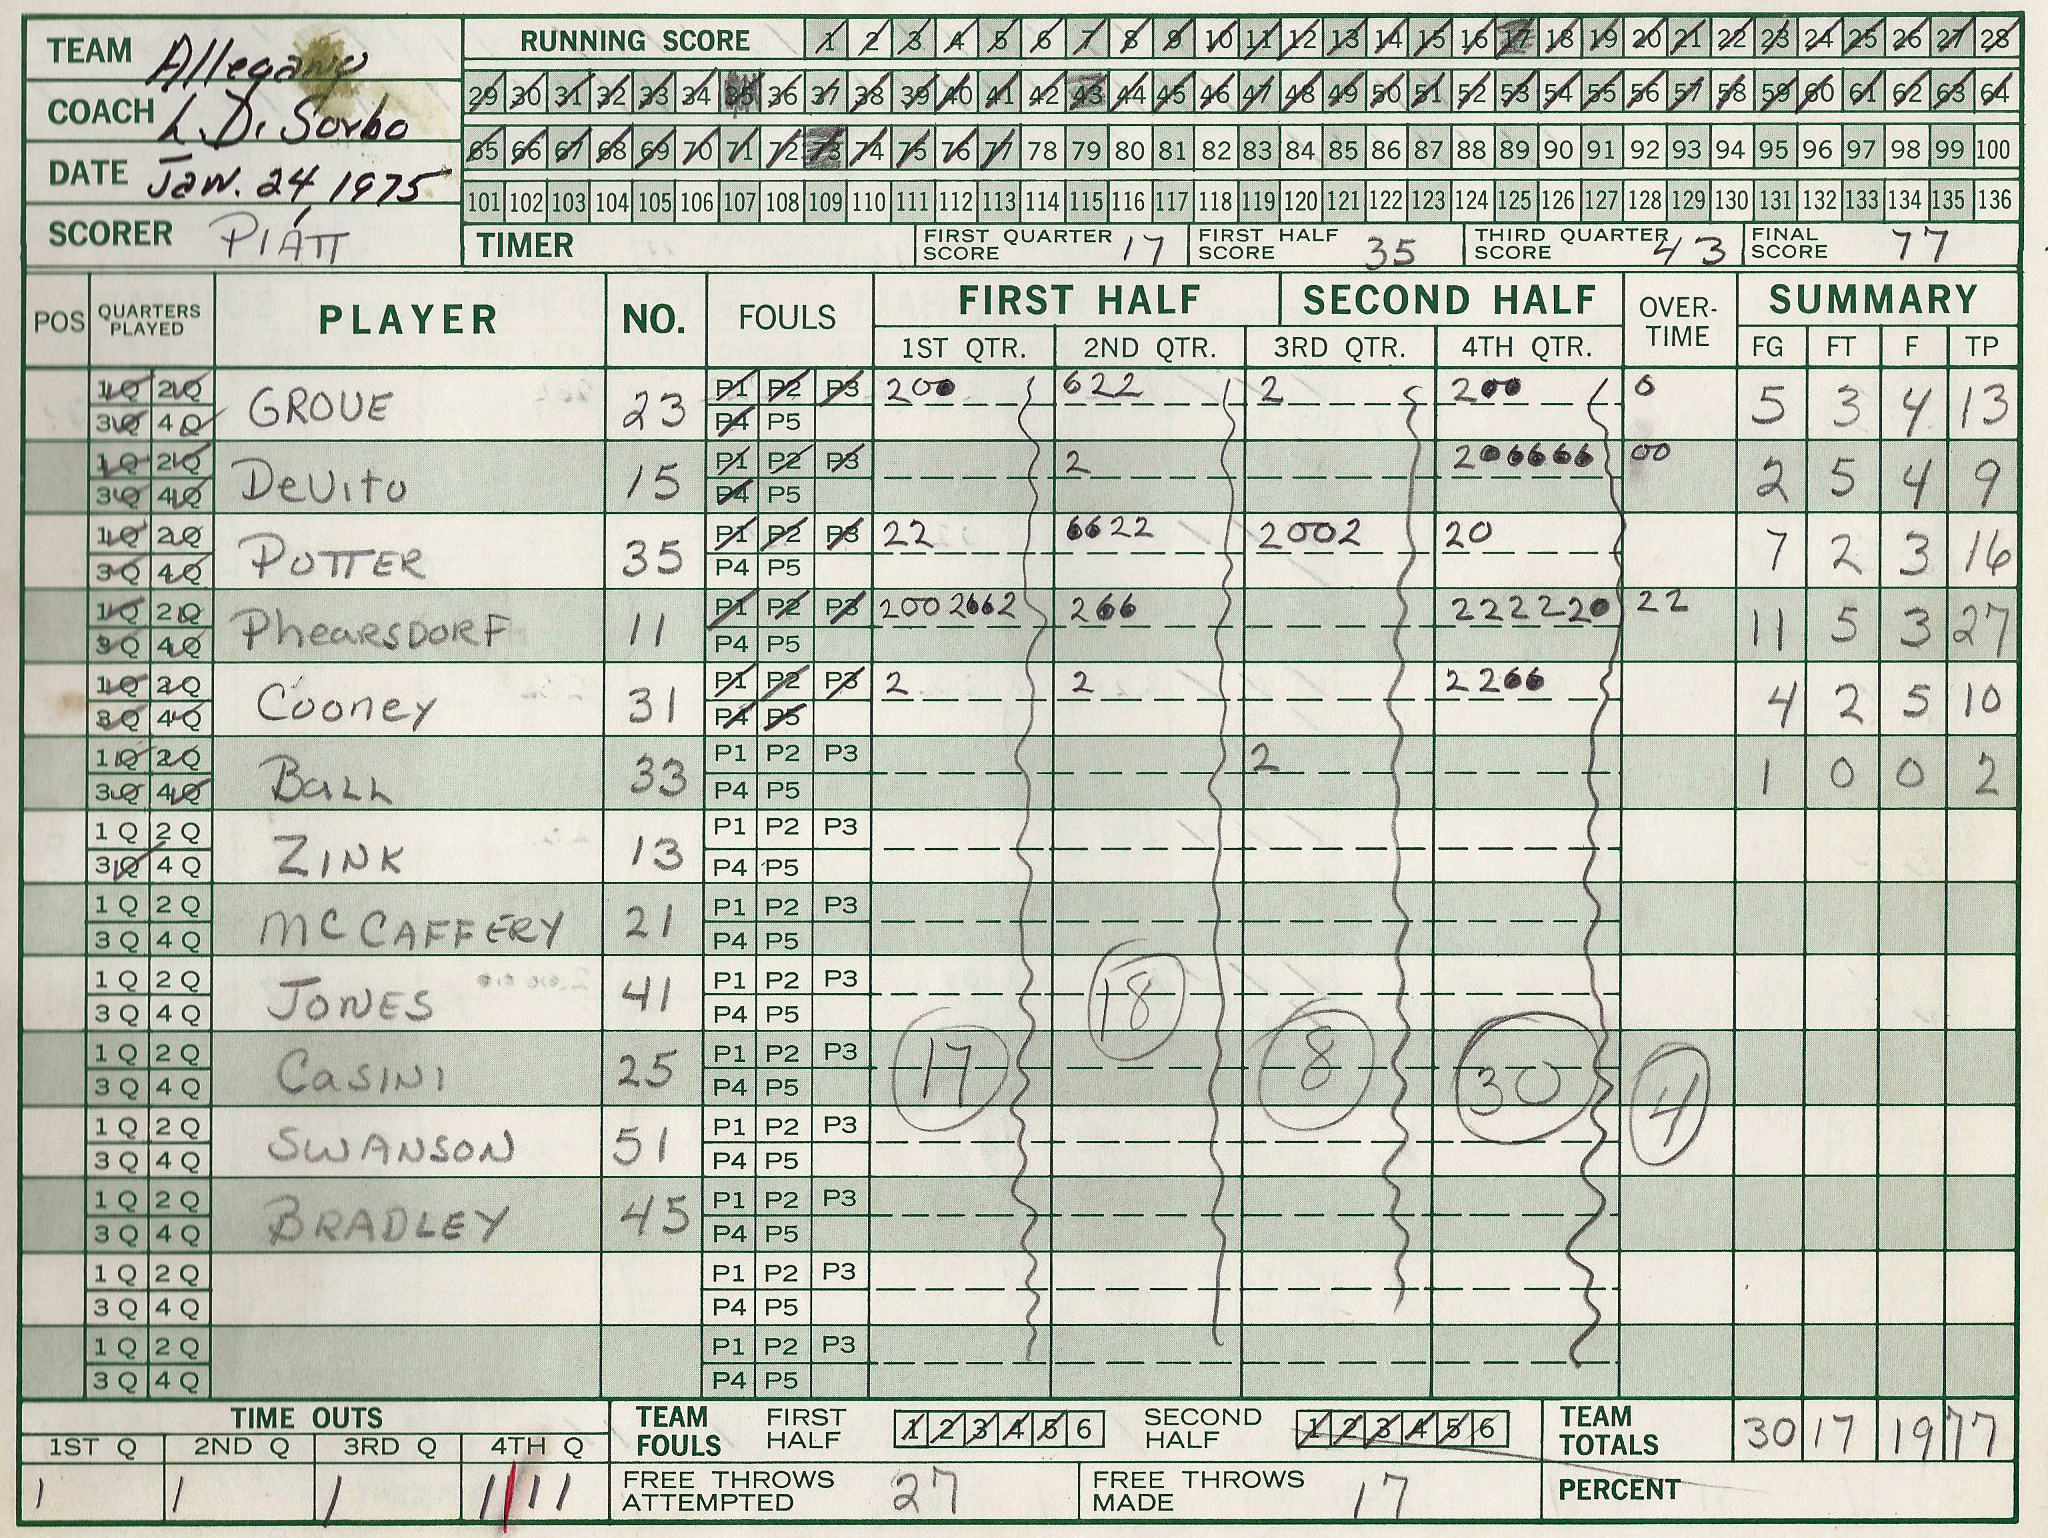 TEAM Allegany
COACH L. Di Sorbo
DATE Jan. 24, 1975
SCORER PIATT
RUNNING SCORE 1 2 3 4 5 6 7 8 9 10 11 12 13 14 15 16 17 18 19 20 21 22 23 24 25 26 27 28
29 30 31 32 33 34 35 36 37 38 39 40 41 42 43 44 45 46 47 48 49 50 51 52 53 54 55 56 57 58 59 60 61 62 63 64
65 66 67 68 69 70 71 72 73 74 75 76 77 78 79 80 81 82 83 84 85 86 87 88 89 90 91 92 93 94 95 96 97 98 99 100
101 102 103 104 105 106 107 108 109 110 111 112 113 114 115 116 117 118 119 120 121 122 123 124 125 126 127 128 129 130 131 132 133 134 135 136
TIMER FIRST QUARTER SCORE 17 FIRST HALF SCORE 35 THIRD QUARTER SCORE 43 FINAL SCORE 77
POS QUARTERS PLAYED PLAYER NO. FOULS FIRST HALF SECOND HALF OVER-TIME SUMMARY
1ST QTR. 2ND QTR. 3RD QTR. 4TH QTR. FG FT F TP
1Q 2Q GROVE 23 P1 P2 P3 200 622 2 200 0 5 3 4 13
3Q 4Q P4 P5
1Q 2Q DeVito 15 P1 P2 P3 2 2066666 00 2 5 4 9
3Q 4Q P4 P5
1Q 2Q POTTER 35 P1 P2 P3 22 6622 2002 20 7 2 3 16
3Q 4Q P4 P5
1Q 2Q PhearsDORF 11 P1 P2 P3 2002662 266 222220 22 11 5 3 27
3Q 4Q P4 P5
1Q 2Q Cooney 31 P1 P2 P3 2 2 2266 4 2 5 10
3Q 4Q P4 P5
1Q 2Q BALL 33 P1 P2 P3 2 1 0 0 2
3Q 4Q P4 P5
1Q 2Q ZINK 13 P1 P2 P3
3Q 4Q P4 P5
1Q 2Q MCCAFFERY 21 P1 P2 P3
3Q 4Q P4 P5
1Q 2Q JONES 41 P1 P2 P3 18
3Q 4Q P4 P5
1Q 2Q CASINI 25 P1 P2 P3 17 8 30 4
3Q 4Q P4 P5
1Q 2Q SWANSON 51 P1 P2 P3
3Q 4Q P4 P5
1Q 2Q BRADLEY 45 P1 P2 P3
3Q 4Q P4 P5
1Q 2Q P1 P2 P3
3Q 4Q P4 P5
1Q 2Q P1 P2 P3
3Q 4Q P4 P5
TIME OUTS TEAM FOULS FIRST HALF 1 2 3 4 5 6 SECOND HALF 1 2 3 4 5 6 TEAM TOTALS 30 17 19 77
1ST Q 2ND Q 3RD Q 4TH Q
1 1 1 1111 FREE THROWS ATTEMPTED 27 FREE THROWS MADE 17 PERCENT